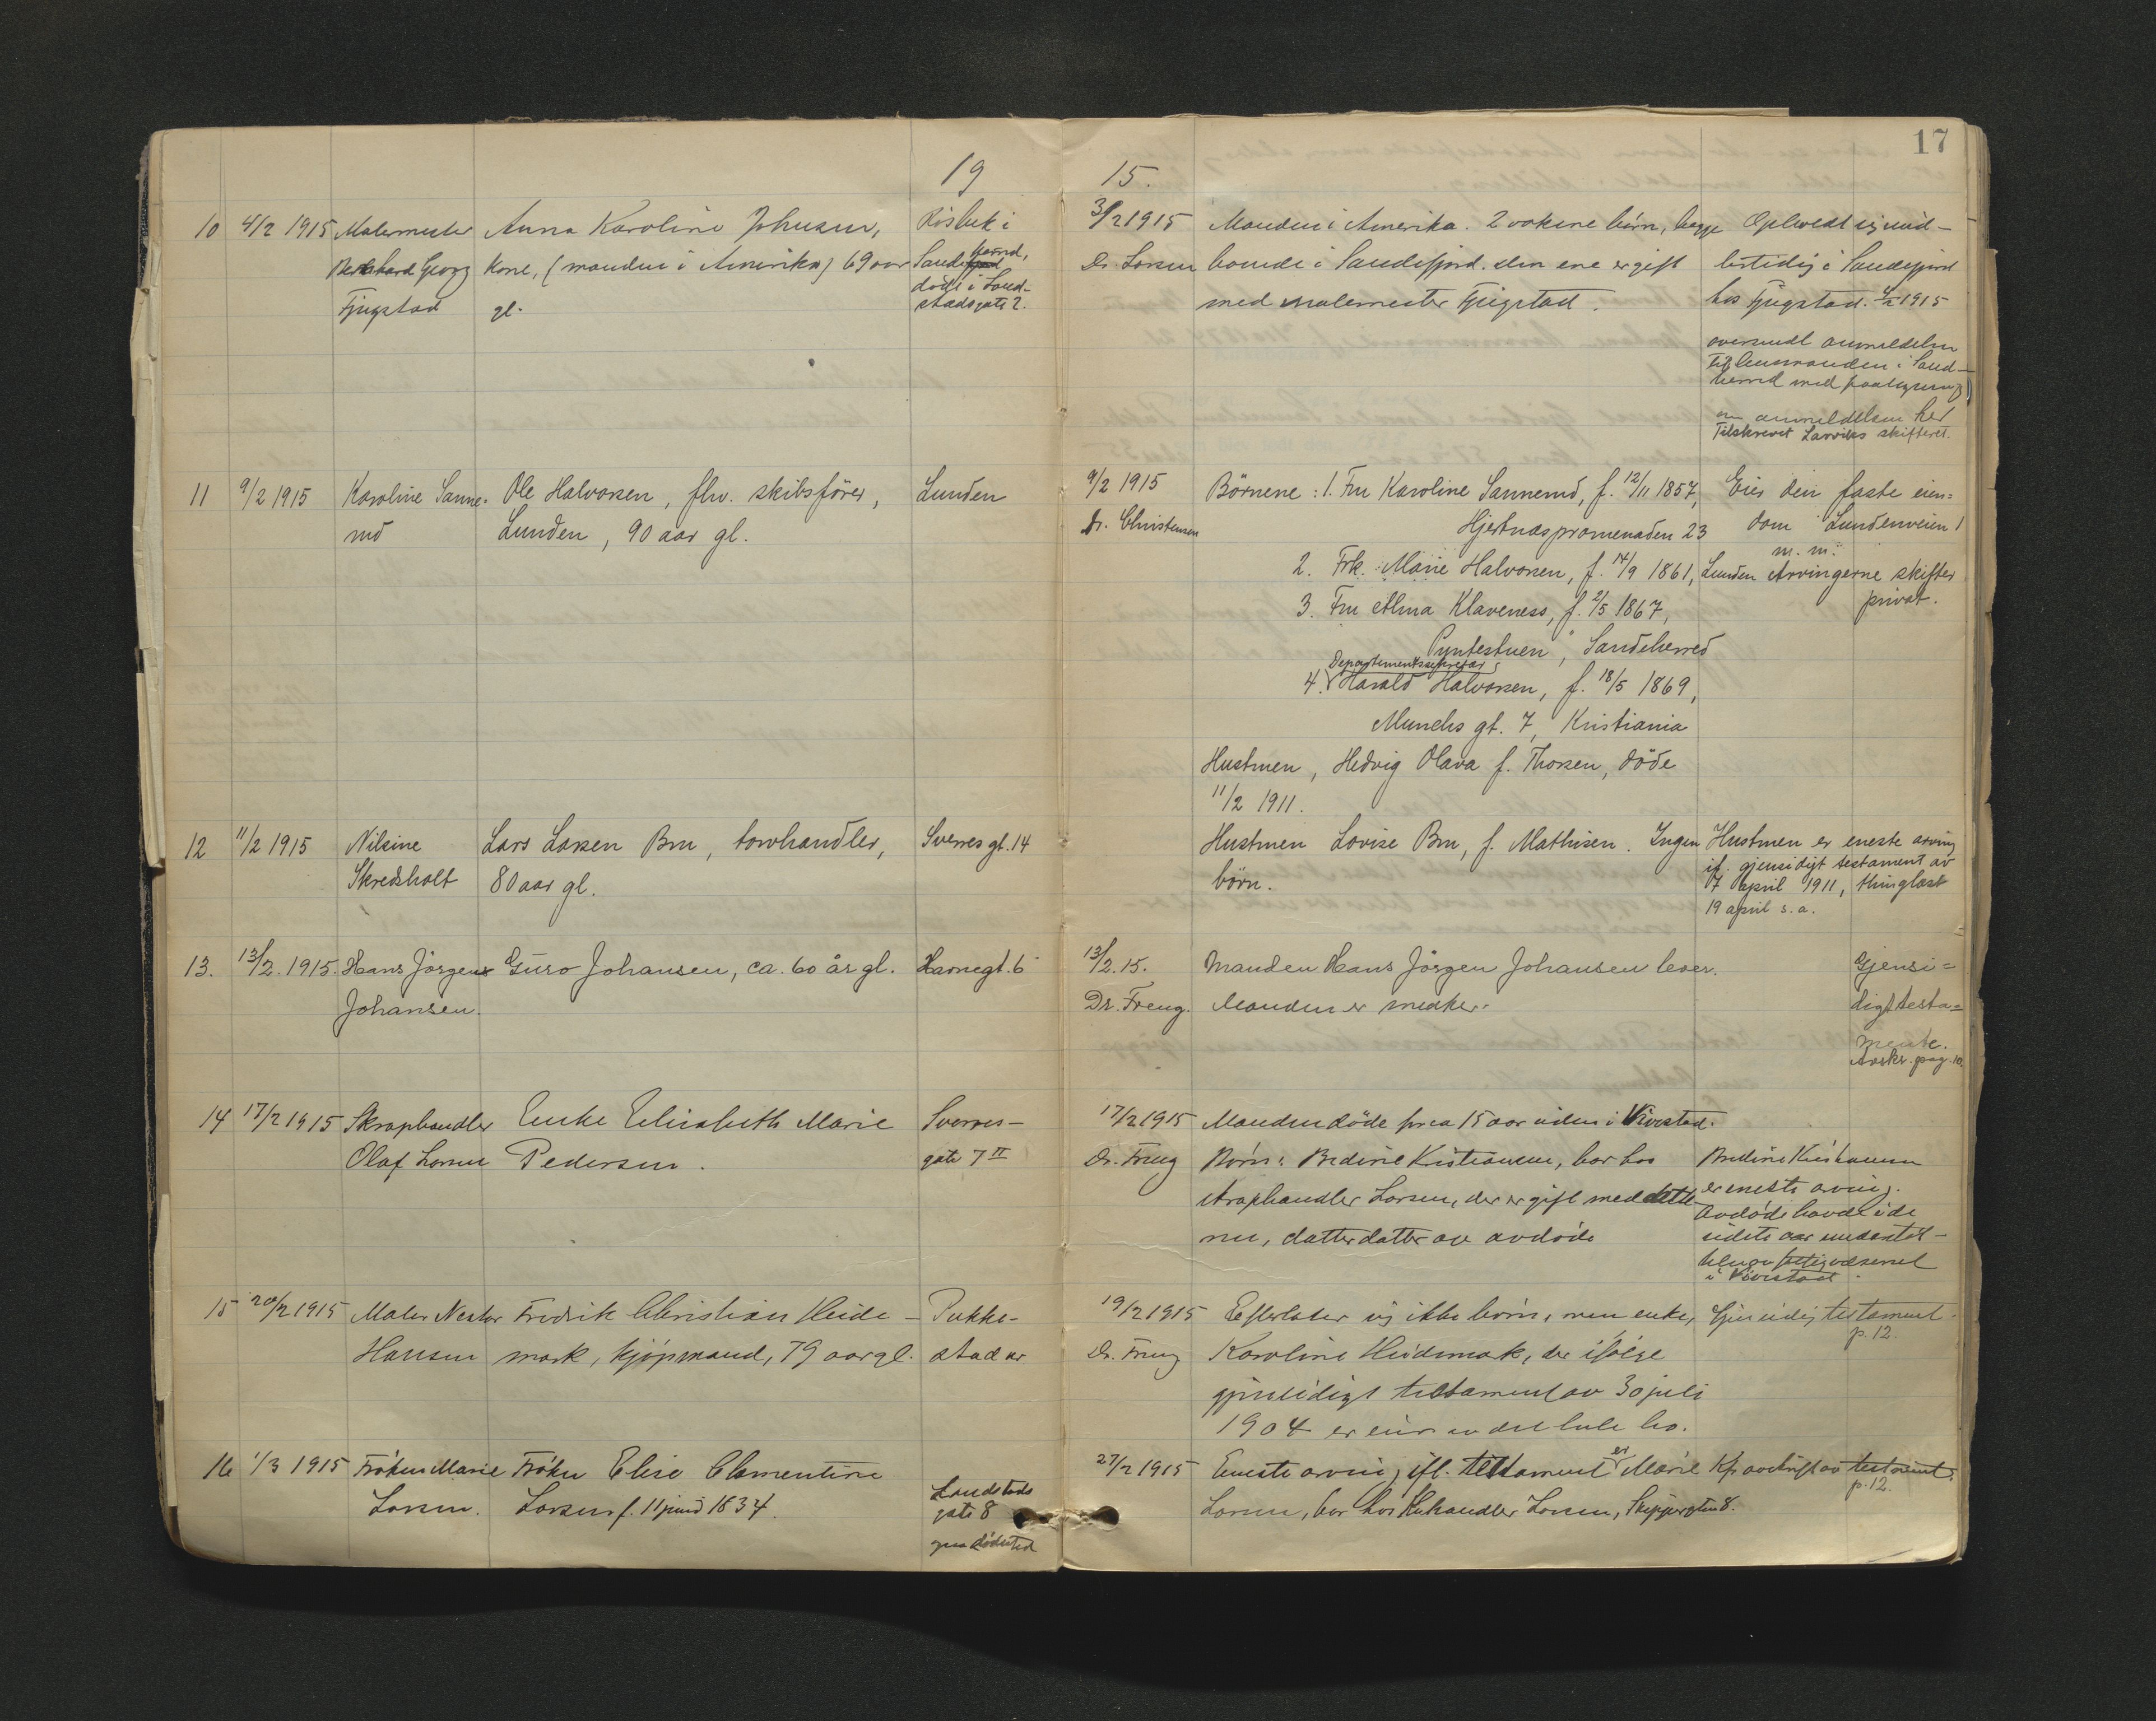 17
19 15.
10 4/2 1915 Malermester Anna Karoline Johnsen, Risbek i 3/2 1915 Manden i Amerika. 2 voksne börn, begge Opholdt sig mid-
Georg Kone, (manden i Amerika) 69 aar Sandeherred, Dr. Larsen boende i Sandefjord. den ene er gift lertidig i Sandefjord
Fjugstad gl. döde i Land- med malermester Fjugstad. hos Fjugstad. 4/2 1915
stadsgate 2.
oversendt anmeldelsen
til lensmanden i Sand-
herred med
om anmeldelsen her
Tilskrevet Larviks skifteret.
11 9/2 1915 Karoline Sanne- Ole Halvorsen, fhv. skibsförer, Lunden 9/2 1915 Börnene: 1. Fru Karoline Sannerud, f. 12/11 1857, Eier den faste eien=
rud Lunden, 90 aar gl. Dr. Christensen Hjertnæspromenaden 23 dom Lundenveien 1
m. m.
2. Frk. Marie Halvorsen, f. 14/9 1861, Lunden Arvingerne skifter
3. Fru Alma Klaveness, f. 2/5 1867, privat.
Pyntestuen, Sandeherred
Departementssekretær
4. Harald Halvorsen, f. 18/5 1869,
Munchs gt. 7, Kristiania
Hustruen, Hedvig Olava f. Thorsen, döde
11/2 1911.
12 11/2 1915 Nilsine Lars Larsen Bru, torvhandler, Sverres gt. 14 Hustruen Lovise Bru, f. Mathisen. Ingen Hustruen er eneste arving
Skredsholt 80 aar gl. börn. if. gjensidigt testament av
7 april 1911, thinglæst
19 april s. a.
13. 13/2. 1915. Hans Jörgen Guro Johansen, ca. 60 år gl. Havnegt. 6 13/2. 15. Manden Hans Jörgen Johansen lever. Gjensi=
Johansen. Dr. Freng. Manden er snedker. digt testa=
mente.
Avskr. pag. 10.
14 17/2 1915 Skraphandler Enke Elisabeth Marie Sverres- 17/2 1915 Manden döde for ca 15 aar siden i
Olaf Larsen Pedersen. gate 7 II Dr. Freng Börn: Bredine Kristiansen, bor hos Bredine Kristiansen
skraphandler Larsen, der er gift med er eneste arving.
nes, datterdatter av avdöde Avdöde havde i de
sidste aar understöt-
telse av fattigvæsenet
i
15 20/2 1915 Maler Nestor Fredrik Christian Heide- Pukke- 19/2 1915 Efterlater sig ikke börn, men enke, Gjensidig testament.
p. 12.
Hansen mark, kjöpmand, 79 aar gl. stad Dr. Freng Karoline Heidemark, der ifölge
gjensidigt testament av 30 juli
1904 er eier av det hele bo.
16 1/3 1915 Fröken Marie Fröken Elise Clementine Landstads 27/2 1915 Eneste arving ifl. testament er Marie Kfr avskrift av testament.
p. 12.
Larsen. Larsen f. 11 juni 1834. gate 8 Larsen, bor hos Larsen, Skippergten 8.
dödssted